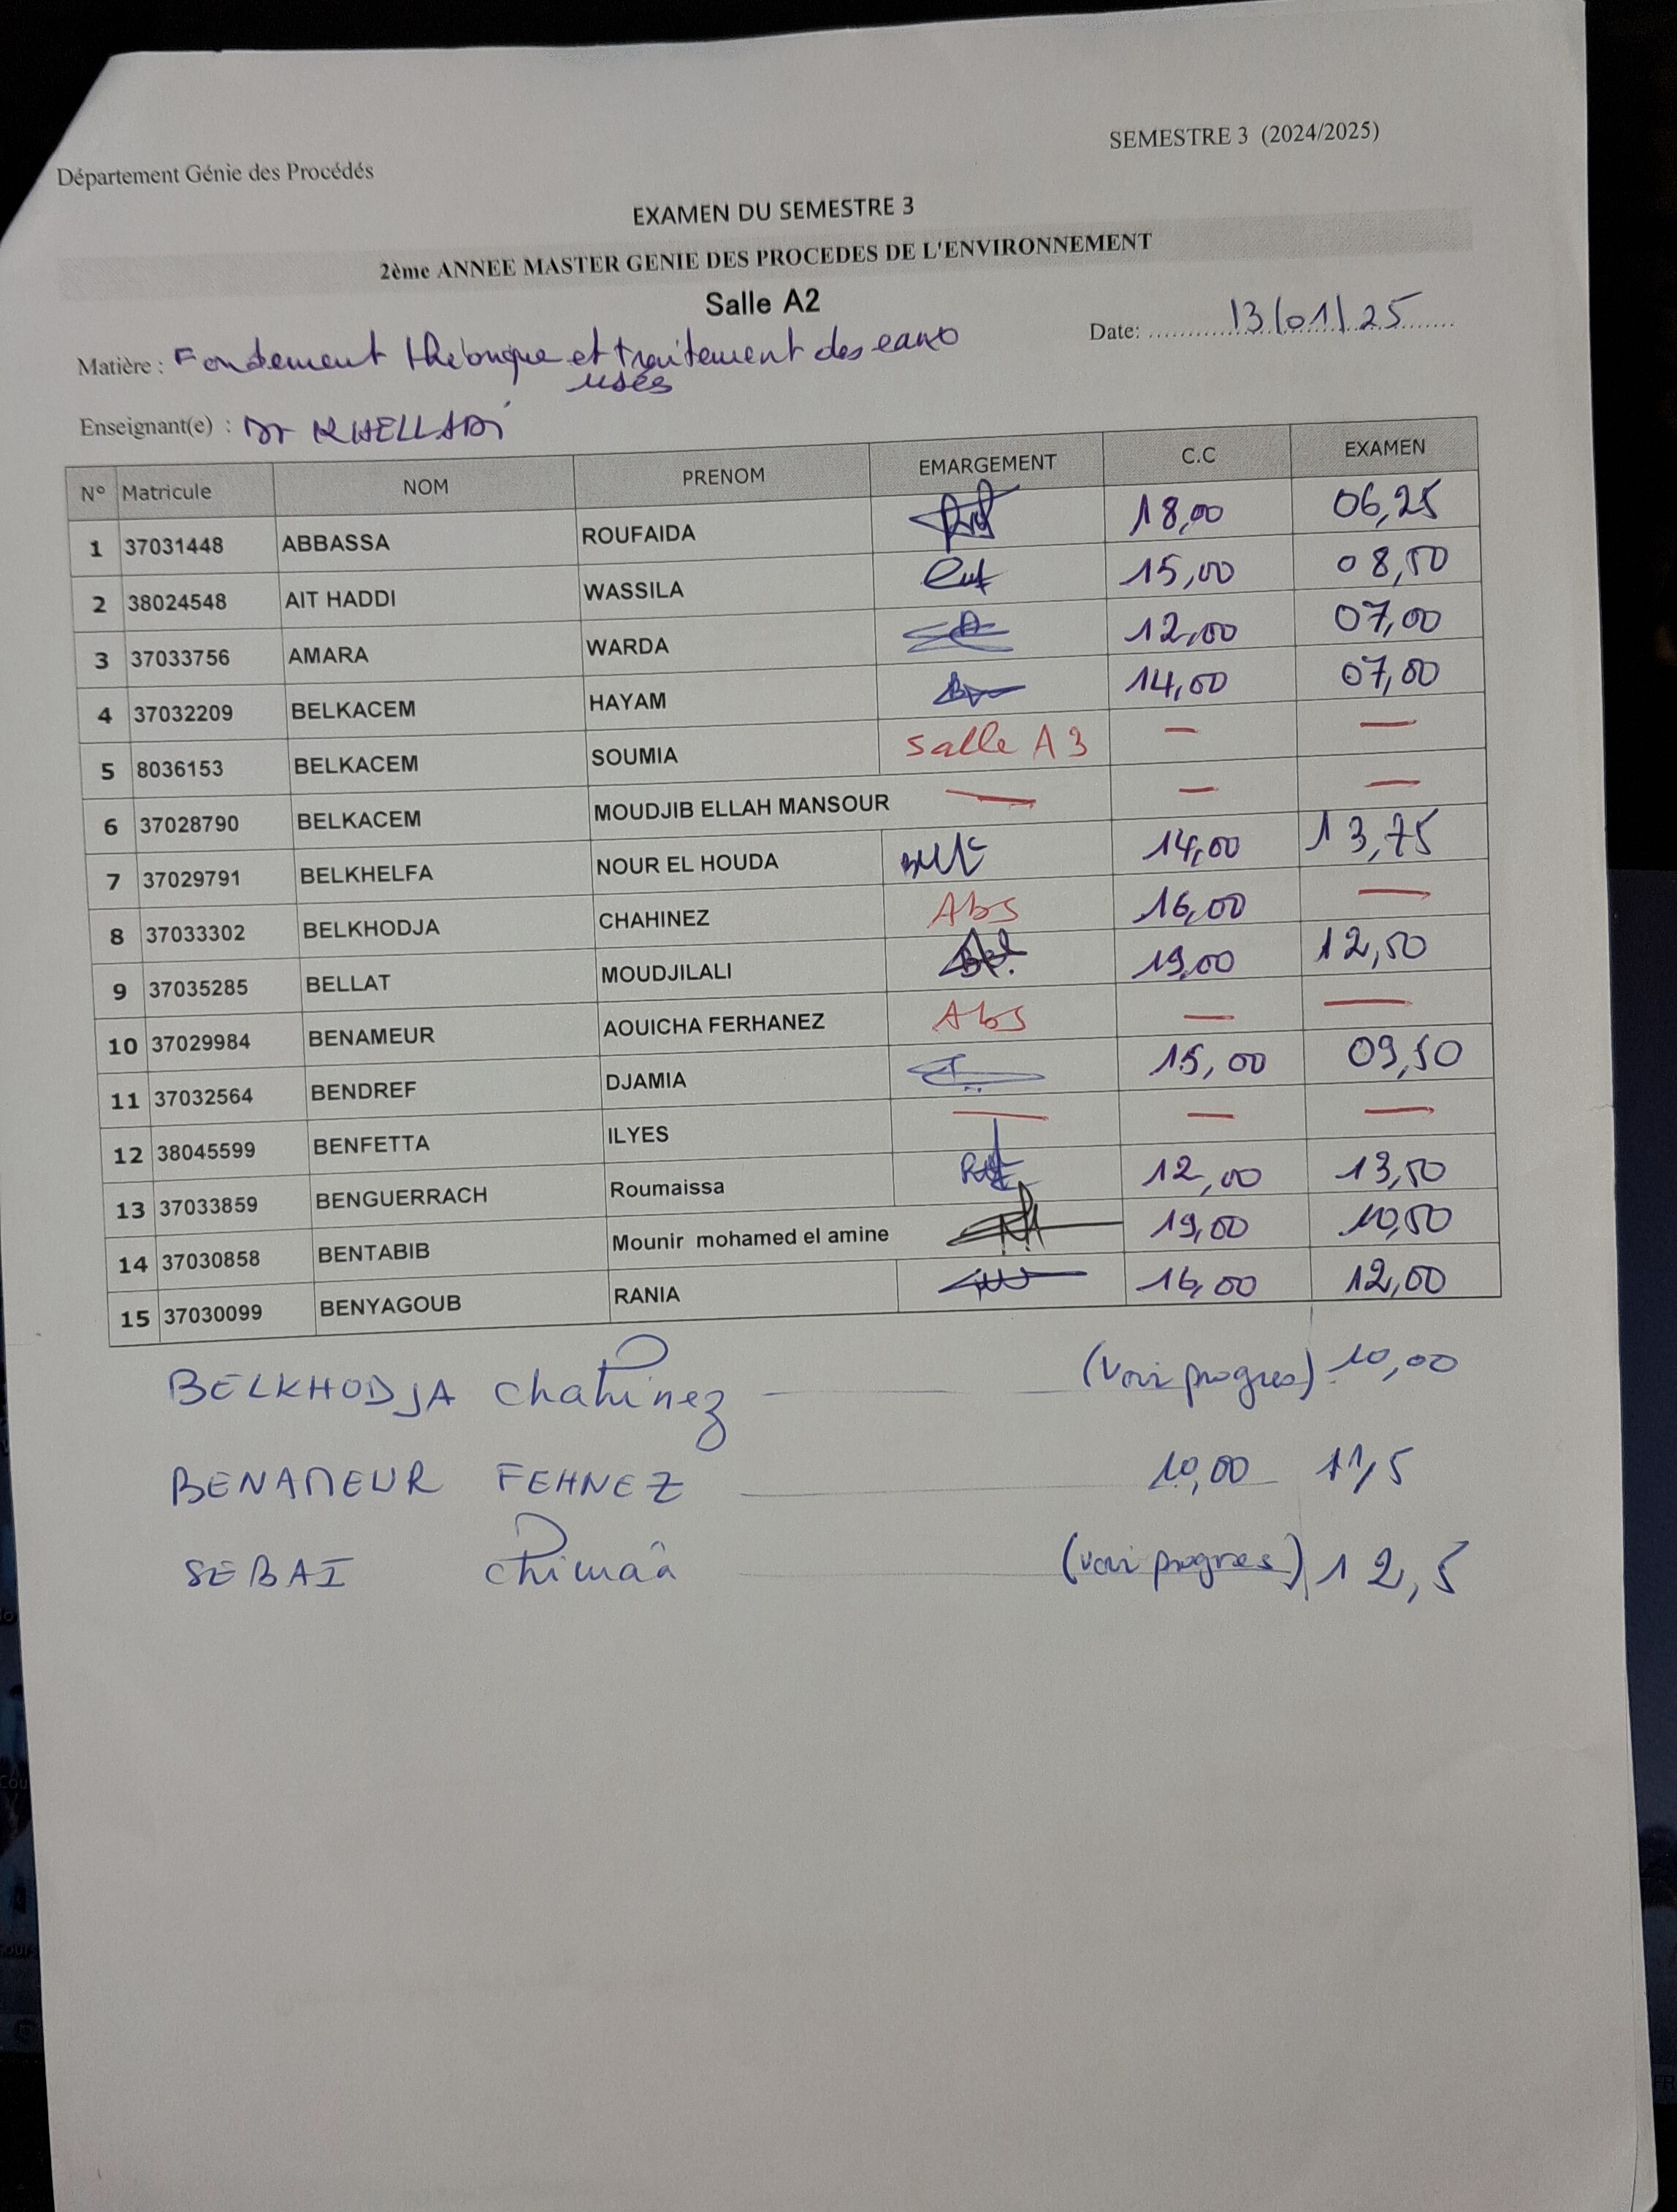 Département Génie des Procédés
SEMESTRE 3 (2024/2025)
EXAMEN DU SEMESTRE 3
2ème ANNEE MASTER GENIE DES PROCEDES DE L'ENVIRONNEMENT
Salle A2
Matière : Fondement théorique et traitement des eaux
usés
Date: 13/01/25
Enseignant(e) : Dr KHELLADI
N° Matricule NOM PRENOM EMARGEMENT C.C EXAMEN
1 37031448 ABBASSA ROUFAIDA 18,00 06,25
2 38024548 AIT HADDI WASSILA 15,00 08,50
3 37033756 AMARA WARDA 12,00 07,00
4 37032209 BELKACEM HAYAM 14,00 07,00
5 8036153 BELKACEM SOUMIA Salle A3 — —
6 37028790 BELKACEM MOUDJIB ELLAH MANSOUR — — —
7 37029791 BELKHELFA NOUR EL HOUDA 14,00 13,75
8 37033302 BELKHODJA CHAHINEZ Abs 16,00 —
9 37035285 BELLAT MOUDJILALI 19,00 12,50
10 37029984 BENAMEUR AOUICHA FERHANEZ Abs — —
11 37032564 BENDREF DJAMIA 15,00 09,50
12 38045599 BENFETTA ILYES — — —
13 37033859 BENGUERRACH Roumaissa 12,00 13,50
14 37030858 BENTABIB Mounir mohamed el amine 19,00 10,50
15 37030099 BENYAGOUB RANIA 16,00 12,00
BELKHODJA Chahinez — (Voir progres) 10,00
BENAMEUR FEHNEZ — 10,00 11,5
SEBAI Chimaâ — (Voir progres) 12,5